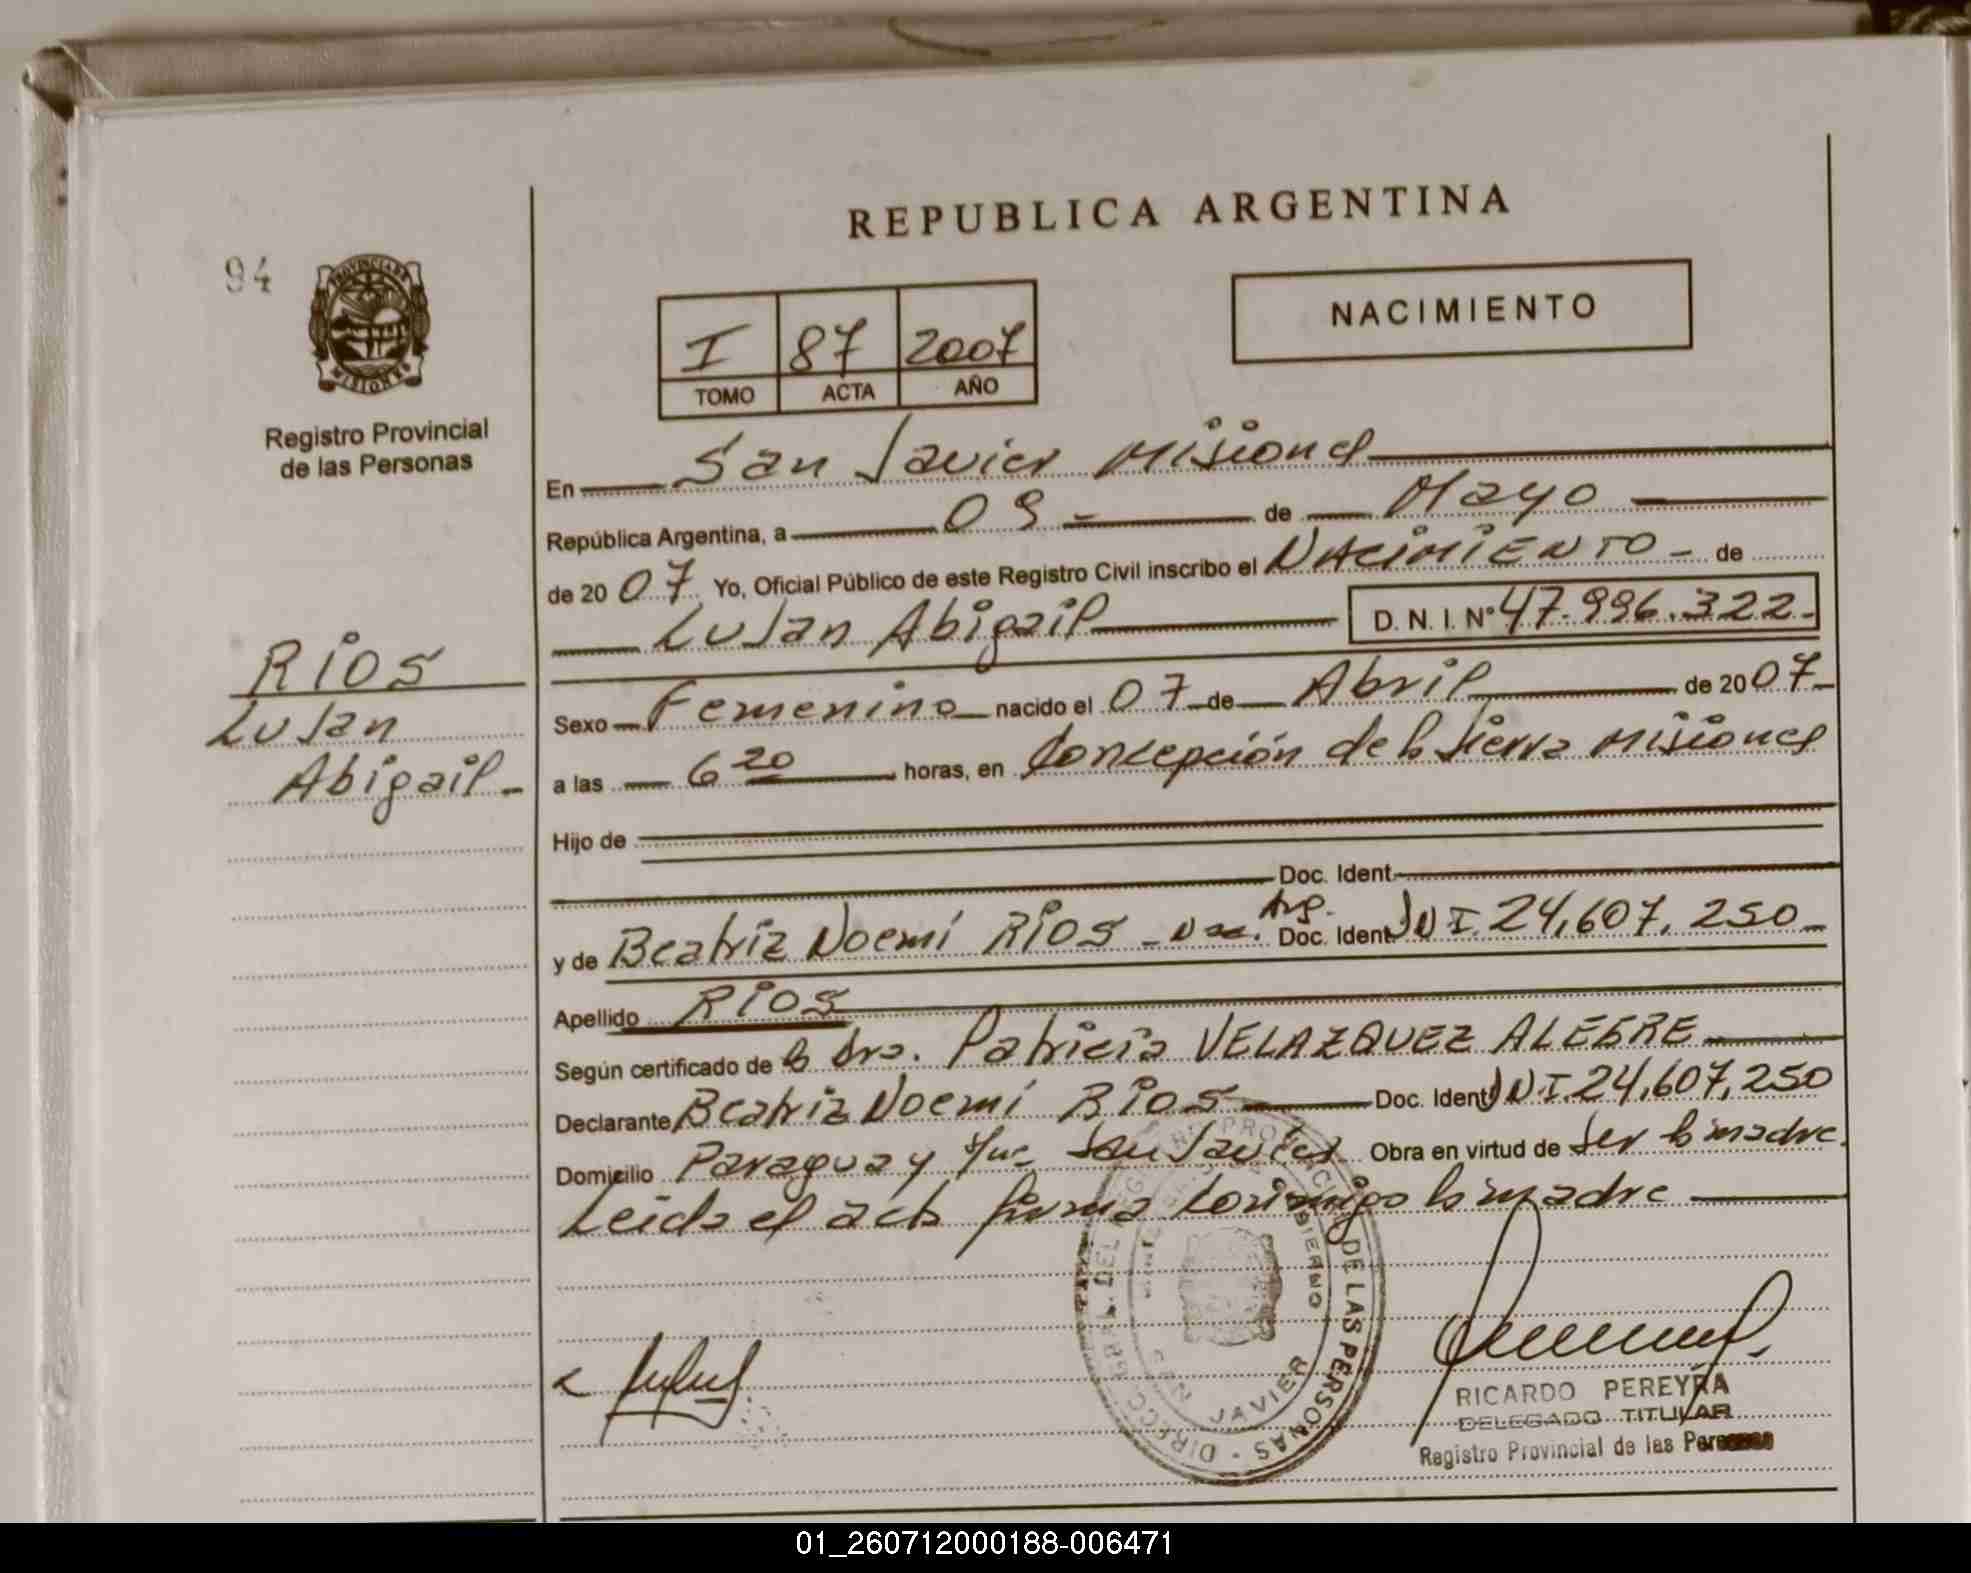 REPUBLICA ARGENTINA
94
PROVINCIA DE
MISIONES
Registro Provincial
de las Personas
NACIMIENTO
I 87 2007
TOMO ACTA AÑO
En San Javier Misiones
República Argentina, a 09 - de Mayo
de 2007 Yo, Oficial Público de este Registro Civil inscribo el NACIMIENTO - de
LuJan Abigail D. N. I. Nº 47.996.322.-
RÍOS
LuJan
Abigail -
Sexo Femenino nacido el 07 de Abril de 2007
a las 6 20 horas, en Concepción de la Sierra Misiones
Hijo de
Doc. Ident.
y de Beatriz Noemí RÍOS - Nac. Arg. Doc. Ident. DNI. 24.607.250
Apellido RÍOS
Según certificado de la Dra. Patricia VELAZQUEZ ALEGRE
Declarante Beatriz Noemí RÍOS Doc. Ident. DNI. 24.607.250
Domicilio Paraguay San Javier Obra en virtud de ser la madre.
Leída el acta firma conmigo la madre
DE LAS PERSONAS
SAN JAVIER
RICARDO PEREYRA
DELEGADO TITULAR
Registro Provincial de las Personas
01_260712000188-006471